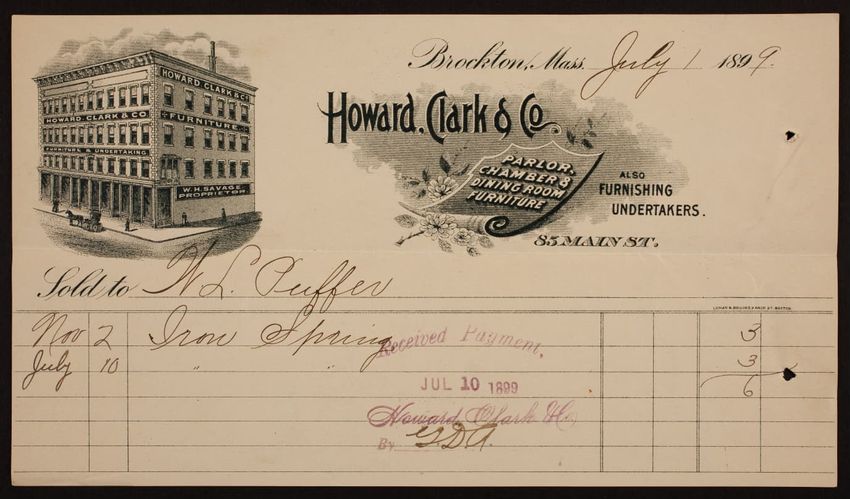 HOWARD CLARK & CO
HOWARD CLARK & CO
FURNITURE
FURNITURE & UNDERTAKING
W.H. SAVAGE
PROPRIETOR
Brockton, Mass. July 1 1899.
Howard, Clark & Co.
PARLOR,
CHAMBER &
DINING ROOM
FURNITURE
ALSO
FURNISHING
UNDERTAKERS.
85 MAIN ST.
Sold to W L. Puffer
Nov 2 Iron Spring 3
July 10 " " 3
6
Received Payment,
JUL 10 1899
Howard Clark & Co
By G.D.A.